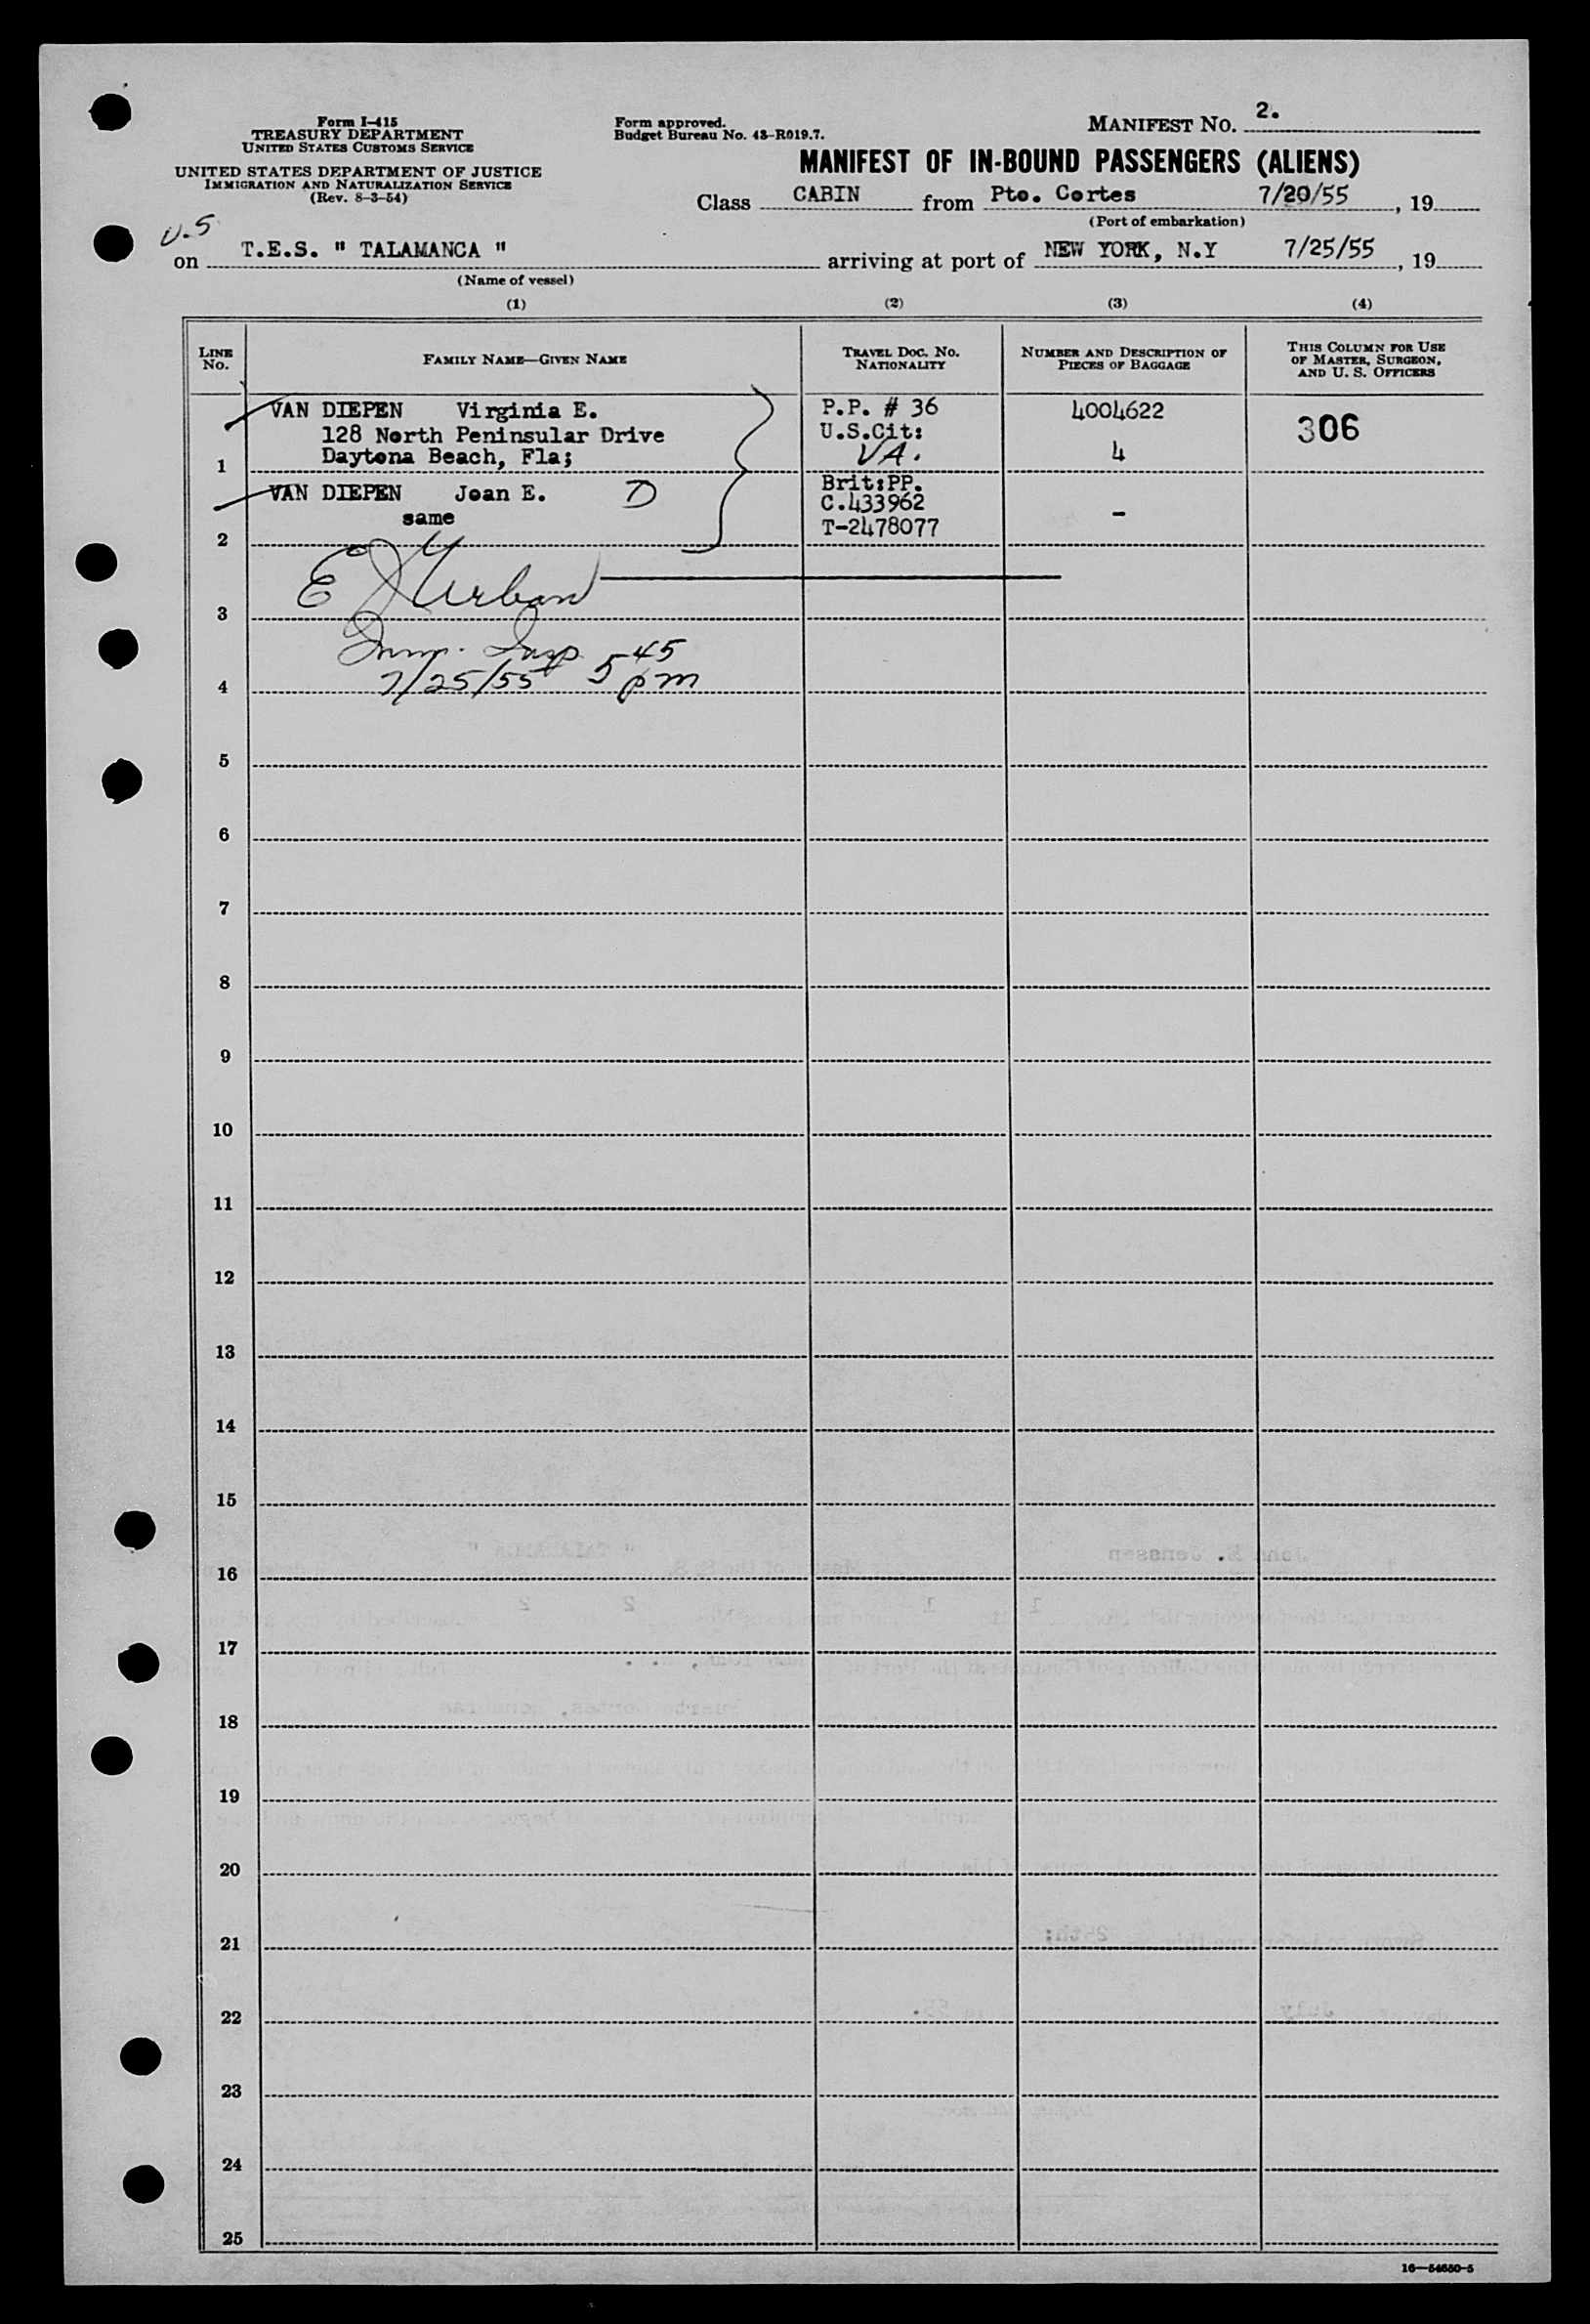 Form I-415
TREASURY DEPARTMENT
UNITED STATES CUSTOMS SERVICE
UNITED STATES DEPARTMENT OF JUSTICE
IMMIGRATION AND NATURALIZATION SERVICE
(Rev. 8-3-54)
Form approved.
Budget Bureau No. 43-R019.7.
MANIFEST No. 2.
MANIFEST OF IN-BOUND PASSENGERS (ALIENS)
Class CABIN from Pto. Cortes 7/20/55, 19
(Port of embarkation)
U.S
on T.E.S. " TALAMANCA " arriving at port of NEW YORK, N.Y 7/25/55, 19
(Name of vessel)
(1) (2) (3) (4)
LINE No. FAMILY NAME—GIVEN NAME TRAVEL DOC. NO. NATIONALITY NUMBER AND DESCRIPTION OF PIECES OF BAGGAGE THIS COLUMN FOR USE OF MASTER, SURGEON, AND U. S. OFFICERS
VAN DIEPEN Virginia E. P.P. # 36 4004622 306
128 North Peninsular Drive U.S.Cit:
1 Daytona Beach, Fla; VA. 4
VAN DIEPEN Joan E. D Brit:PP.
same C.433962 -
2 T-2478077
E J Urban
3
Imm. Insp 5 45
4 7/25/55 pm
5
6
7
8
9
10
11
12
13
14
15
16
17
18
19
20
21
22
23
24
25
16—54650-5